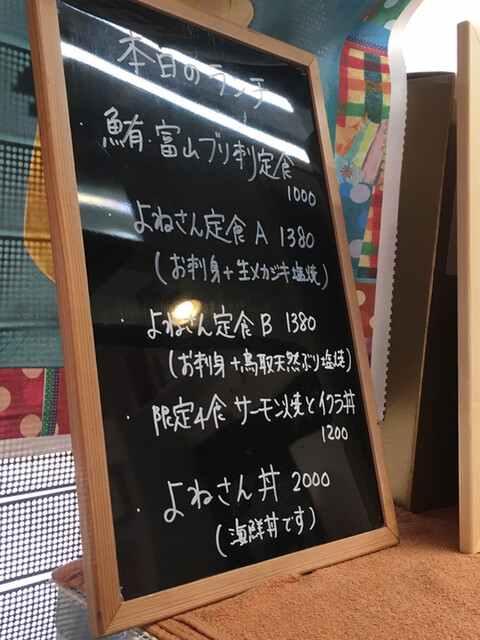 本日のランチ
・鮪・富山ブリ刺定食
1000
・よねさん定食 A 1380
(お刺身+生メカジキ塩焼)
・よねさん定食 B 1380
(お刺身+鳥取天然ぶり塩焼)
・限定4食 サーモン焼とイクラ丼
1200
・よねさん丼 2000
(海鮮丼です)